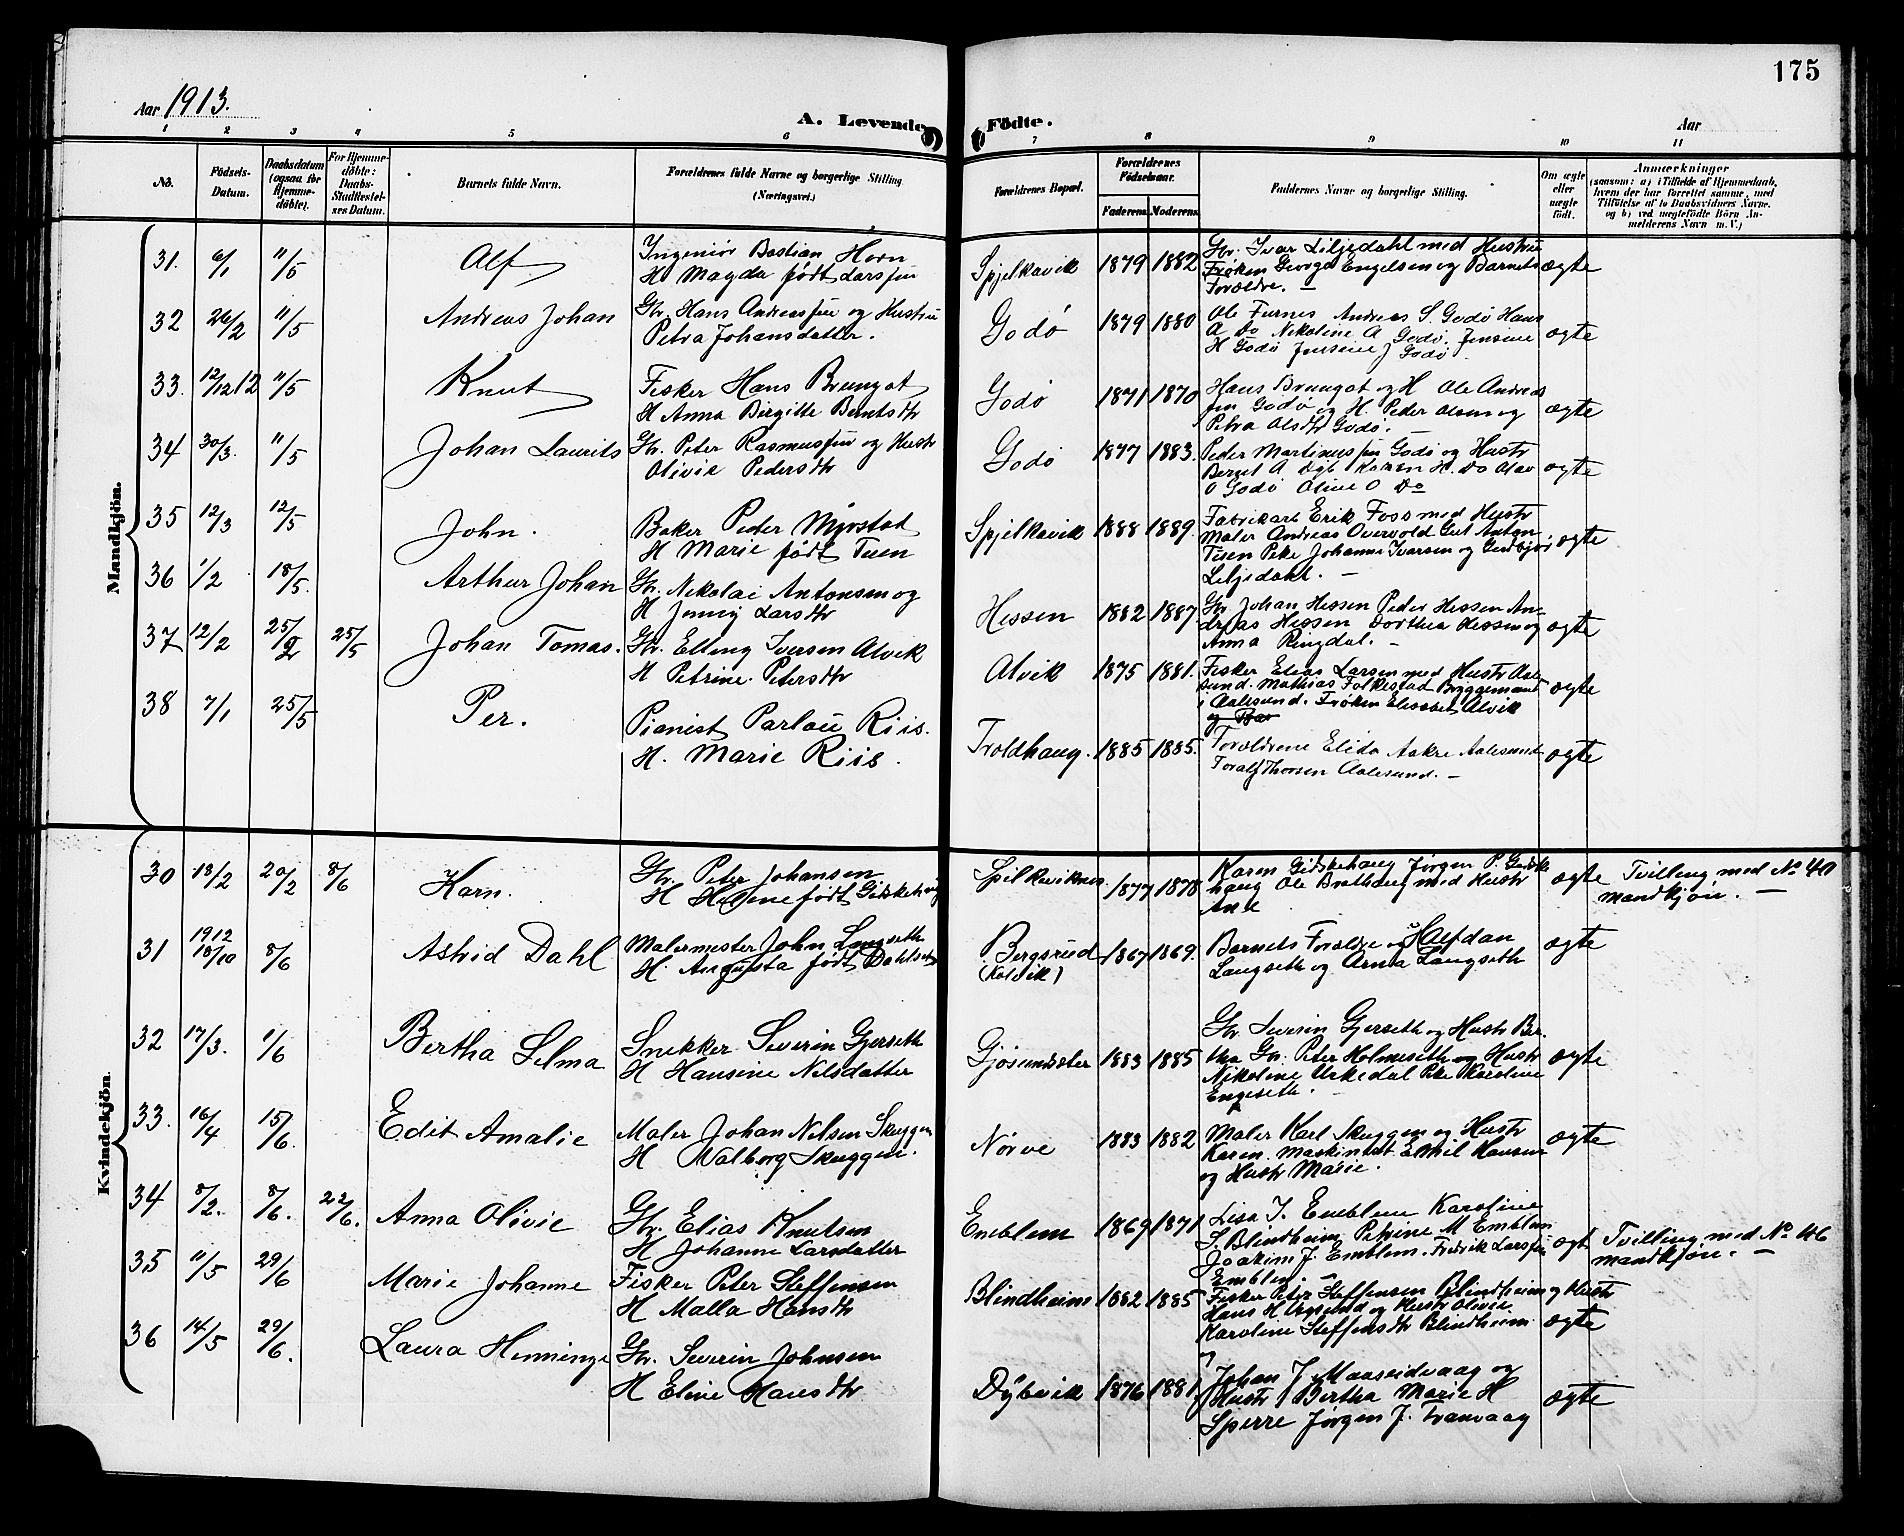 175
Aar 1913.
A. Levende Födte.
Aar
1 2 3 4 5 6 7 8 9 10 11
No.
Födsels-Datum.
Daabsdatum (ogsaa for Hjemme-döbte).
For Hjemme-döbte: Daabs-Stadfæstel-ses Datum.
Barnets fulde Navn.
Forældrenes fulde Navne og borgerlige Stilling (Næringsvei.)
Forældrenes Bopæl.
Forældrenes Födselsaar.
Faderens. Moderens.
Faddernes Navne og borgerlige Stilling.
Om ægte eller uægte födt.
Anmærkninger
(saasom: a) i Tilfælde af Hjemmedaab, hvem der har forrettet samme, med Tilføielse af to Daabsvidners Navne. og b) ved uægtefödte Börn An-melderens Navn m. V.)
Mandkjön.
31. 6/1 11/5 Alf
Ingeniör Bastian Horn
H Magda født Larssen
Spjelkavik 1879 1882
Gbr. Ivar Liljedahl med Hustru
Frøken Georga Engelsen og Barnets
Forældre. —
ægte
32 26/2 11/5 Andreas Johan
Gbr. Hans Andreassen og Hustru
Petra Johansdatter.
Godø 1879 1880
Ole Furnes Andreas S. Godø Hans
A Do Nikoline A Godø. Jensine
H Godø Jensine J Godø
ægte
33. 12/12 12 11/5 Knut
Fisker Hans Brungot
H Anna Birgitte Berntsdtr
Godø 1871 1870
Hans Brungot og H Ole Andreas
sen Godø og H. Peder Olsen og
Petra Olsdtr Godø.
ægte
34 30/3. 11/5 Johan Laurits
Gbr. Peter Rasmussen og Hustr
Olivie Pedersdtr
Godø 1877 1883.
Peder Martinussen Godø og Hustr
Bernt A Dyb Karen H. Do Olav
O Godø Oline O Do
ægte
35 12/3 12/5 John.
Baker Peder Myrstad
H Marie født Tuen
Spjelkavik 1888 1889.
Fabrikarb Erik Foss med Hustr
Maler Andreas Overvold Gut Anton
Tuen Pike Johanne Ivarsen og Gudbjør
Liljedahl. —
ægte
36 1/2 18/5. Arthur Johan
Gbr. Nikolai Antonsen og
H Jenny Larsdtr
Hessen 1882 1887.
Gbr Johan Hessen Peder Hessen An-
dreas Hessen Dorthea Hessen og
Anna Ringdal. —
ægte
37 12/2 25/2 25/5 Johan Tomas.
Gbr. Elling Iversen Alvik
H Petrine Petersdtr
Alvik 1875 1881.
Fisker Elias Larsen med Hustr Aale
sund. Mathias Falkestad Byggemand
i Aalesund. Frøken Elisabet Alvik
og Bar
ægte
38 7/1 25/5 Per.
Pianist Parlau Riis.
H. Marie Riis.
Troldhaug. 1885 1885.
Forældrene Elida Aakre Aalesund
Toralf Thorsen Aalesund. —
ægte
Kvindekjön.
30 18/2 20/2 8/6 Karn.
Gbr. Peter Johansen
H Helene født Gidskehaug
Spilkaviknes 1877 1878
Karen Gidskehaug Jørgen P. Gidske
haug Ole Brathaug med Hustr
Ane
ægte
Tvilling med No 40
mandkjøn. —
31 1912 18/10 8/6 Astrid Dahl
Malermester John Langseth
H. Augusta født Dahlseth
Bergsrud
(Kolvik)
1867 1869.
Barnets Forældre og Halfdan
Langseth og Arna Langseth
ægte
32 17/3. 1/6 Bertha Selma
Snekker Severin Gjerseth
H Hansine Nilsdatter
Gjøsundsæter 1883 1885
Gbr Severin Gjerseth og Hustr Ber-
tha Gbr. Peter Holmeseth og Hustr
Nikoline Urkedal Pike Karoline
Engeseth. —
ægte
33. 16/4 15/6. Edit Amalie
Maler Johan Nilsen Skuggen
H Valborg Skuggen.
Nørve 1883 1882
Maler Karl Skuggen og Hustr
Karen. Maskinist Emil Hansen
og Hustr Marie.
ægte
34 8/2. 8/6. 22/6. Anna Olivie
Gbr. Elias Knutsen
H Johanne Larsdatter
Emblem 1869 1871
Lisa J. Emblem Karoline
S. Blindheim Petrine M Emblem
Joakim J. Emblem. Fredrik Larssen
Emblem. —
ægt
Tvilling med No 46
mandkjøn. —
35 11/5 29/6 Marie Johanne
Fisker Peter Steffensen
H Malla Hansdtr
Blindheim 1882 1885
Fisker Peter Steffensen Blindheim og Hustr
Hans H og Hustr Olivie
Karoline Steffensdtr Blindheim
og
ægte
36 14/5 29/6. Laura Henninge
Gbr. Severin Johnsen
H Eline Hansdtr
Dybvik 1876 1881
Johan J Maaseidvaag og
Hustr Bertha Marie H
Sperre Jørgen J. Tranvaag
ægte